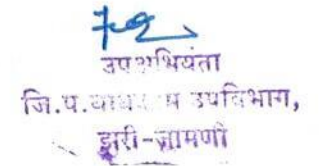 उपअभियंता
जि.प. उपविभाग,
झरी-जामणी